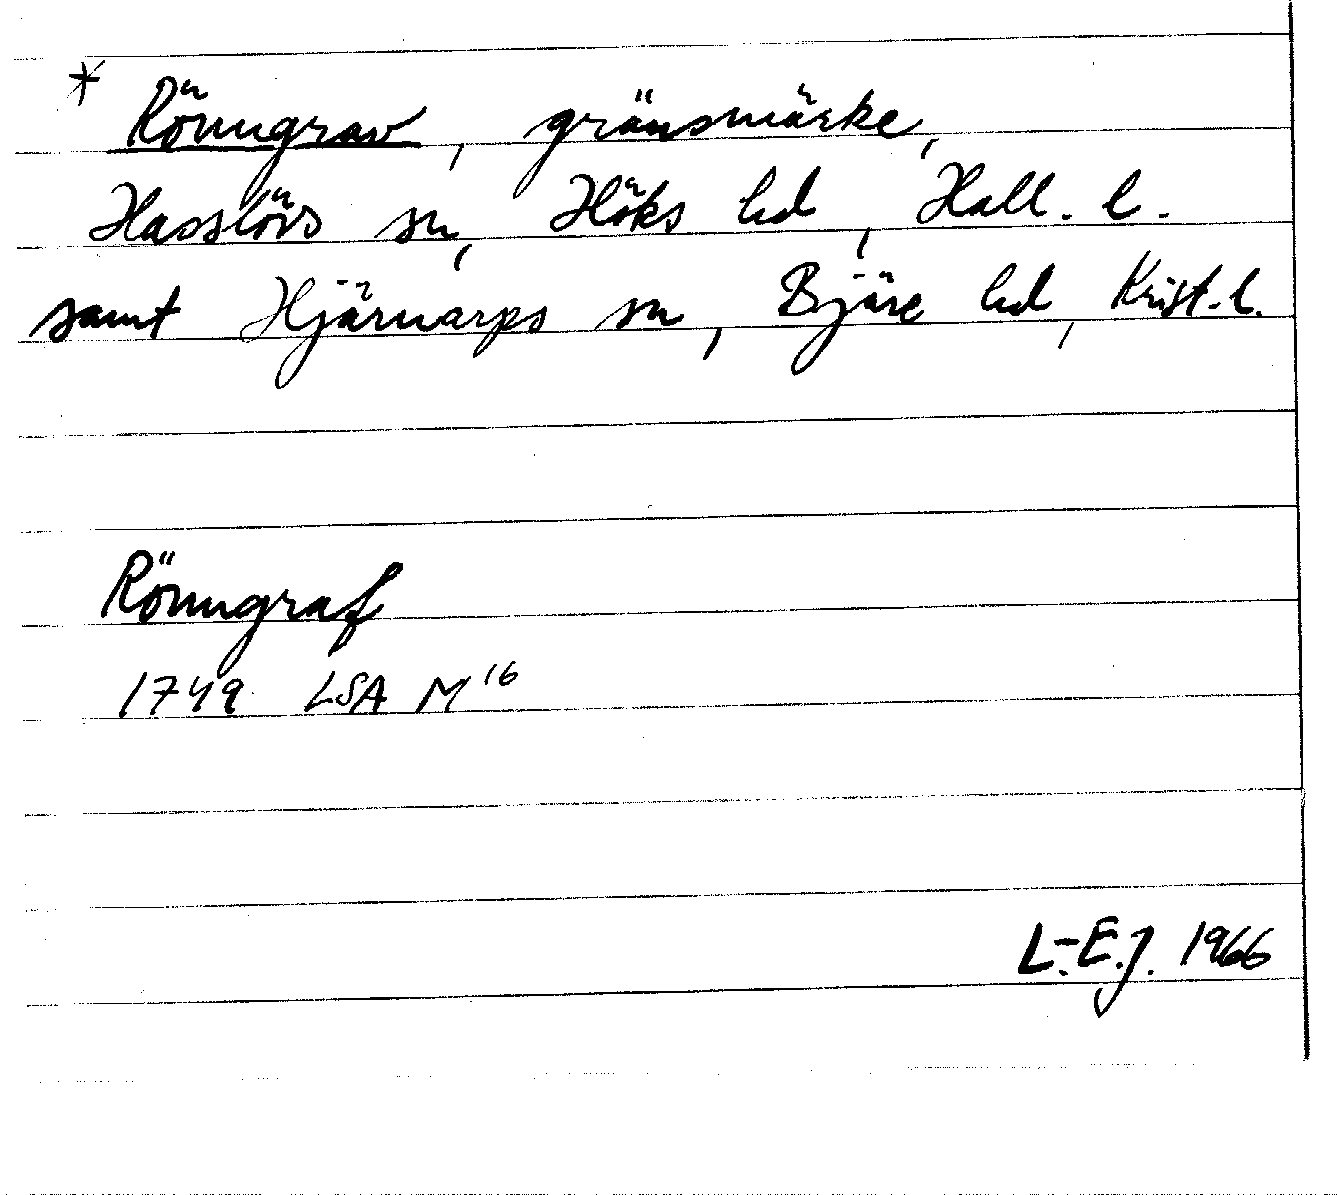 * Rönngrav, gränsmärke,
Hasslövs sn, Höks hd, Hall. l.
samt Hjärnarps sn, Bjäre hd, Krist. l.
Rönngraf
1749 LSA M 16
L.-E.J. 1966